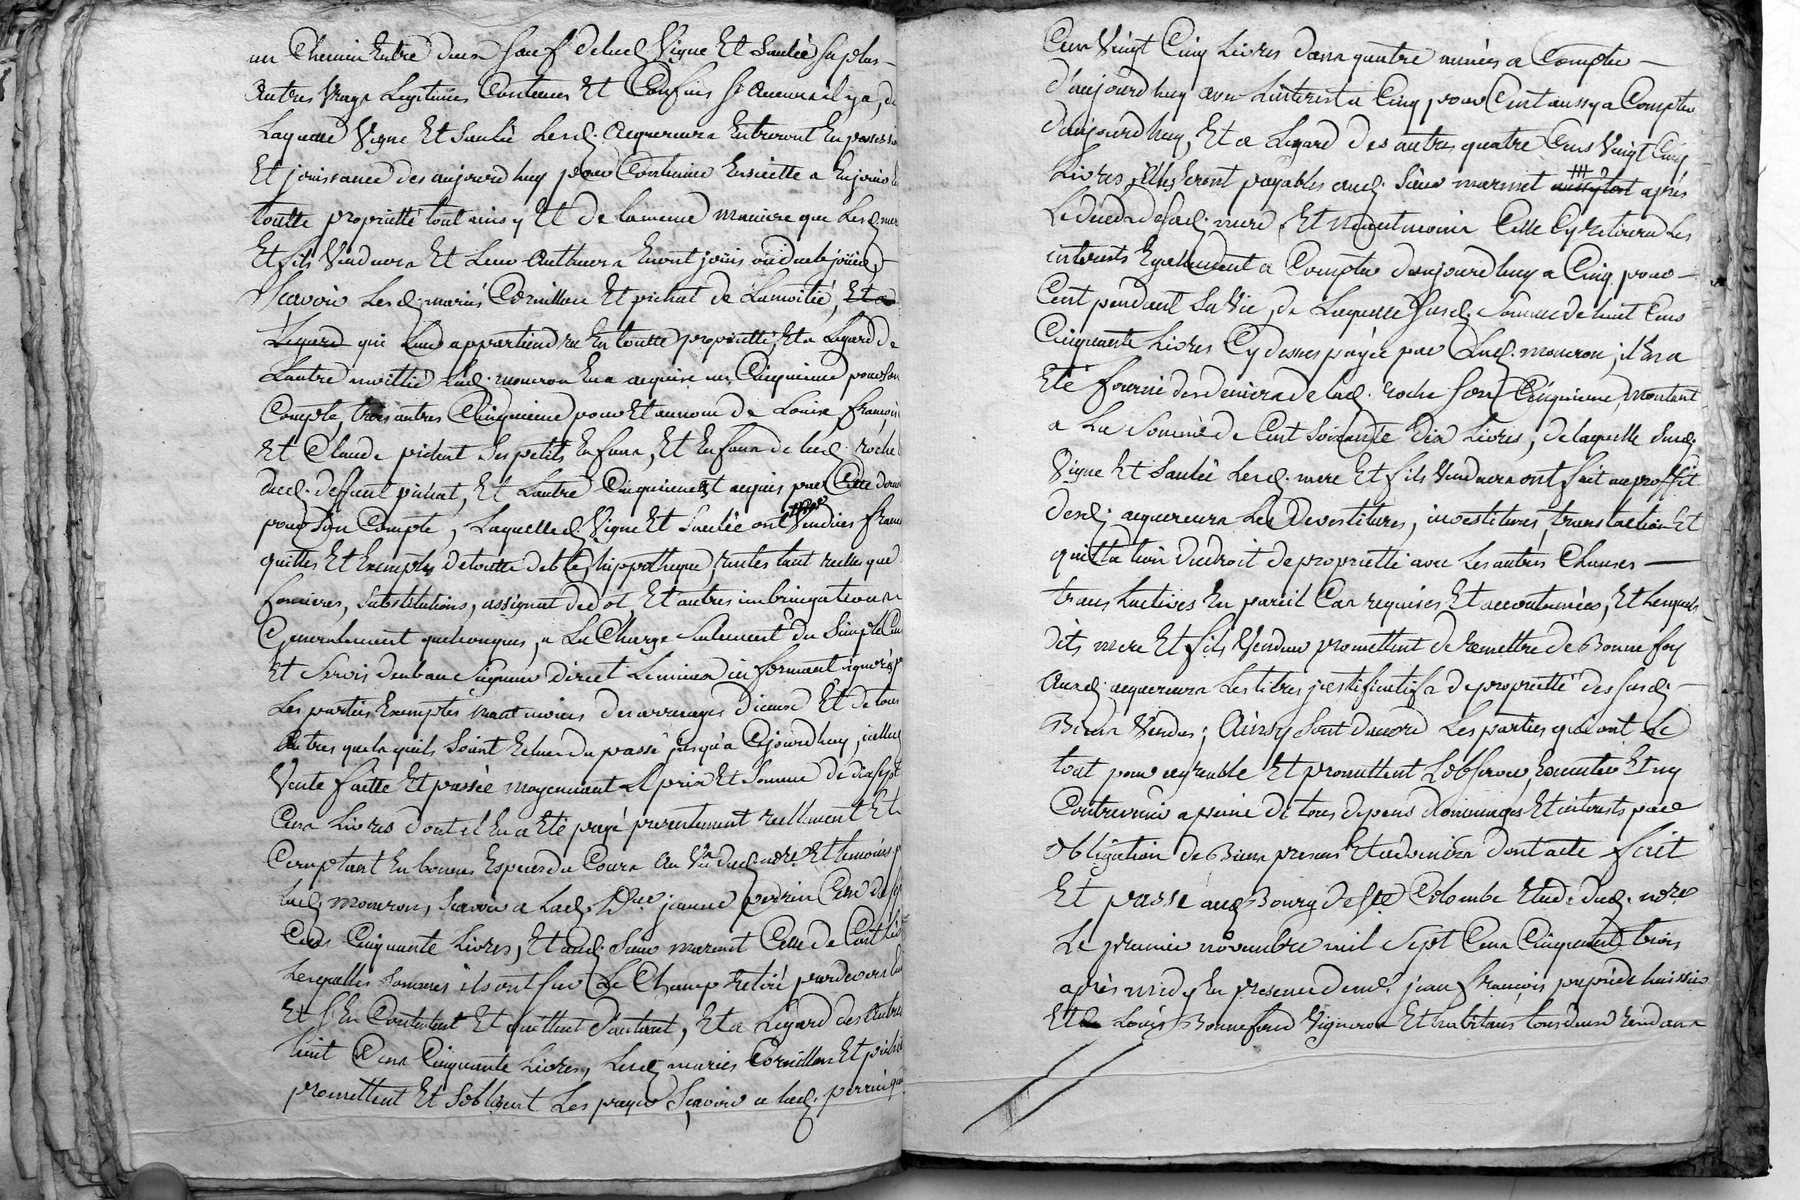 un Chemin Entre deux sauf desd. Vigne Et Saulée sa plus
autres vrays Legitimes Contenues Et Confins sy aucuns il y a, de
Laquelle Vigne Et Saulée Lesd. acquereurs Entreront En possession
Et jouissance des aujourd'huy pour Continuer Ensuitte a En jouir En
toutte proprietté tout ainsy Et de la meme maniere que Lesd. mere
Et fils Vendeurs Et Leur autheurs En ont jouis ou deub jouir,
Scavoir Lesd. mariés Cornillon Et pichat de La moitié, Et a
Legard qui Leur appartiendra En toutte proprietté, Et a Legard de
L'autre moitié Led. moucron En a acquise un Cinquieme pour son
Compte, trois autres Cinquieme pour Et au nom de Louise, françois
Et Claude pichat ses petits Enfans, Et Enfans de lad. roche
dud. deffunt pichat, Et L'autre Cinquieme Est acquis par Cette derniere
pour son Compte, Laquelle Vigne Et Saulée ont Vendues franc
quittes Et Exemptes de toutte debte, hippotheque, rentes tant reelles que
foncieres, substitutions, assignat de dot, Et autres imbringations
Generalement quelconques, a La Charge seulement du Simple Cens
Et Servis deub au Seigneur direct Le mieux informant ignoré p
Les parties Exemptés neant moins des arrerages d'iceux Et de tous
autres quels quils soient Echus du passé jusqu'a aujourd'huy, icelle
Vente faitte Et passée moyennant Le prix Et Somme de dix sept
Cens Livres dont il En a Eté payé presentement reellment Et
Comptant En bonnes Especes du Cours au Vu dud. no.re Et temoins p
Led. moucron, Scavoir a lad. D.lle jeanne perrin Celle de sept
Cens Cinquante Livres, Et aud. Sieur marmet Celle de Cent Livres
Lesquelles Sommes ils ont sur Le Champ Retiré pardevers Eux
Et s'En Contentent Et quittent d'autant, Et a Legard des autres
huit Cens Cinquante Livres, Lesd. mariés Cornillon Et pichat
promettent Et s'obligent Les payer Scavoir a lad. perrin quatre
Cens Vingt Cinq Livres dans quatre années a Compter
d'aujourd'huy avec L'interest a Cinq pour Cent aussy a Compter
d'aujourd'huy, Et a Legard des autres quatre Cens Vingt Cinq
Livres, Elles seront payables aud. Sieur marmet aussytost après
Le deceds de lad. mere, Et neantmoins Celle Cy retirera Les
interests Egallement a Compter d'aujourd'huy a Cinq pour
Cent pendant sa Vie, de Laquelle susd. Somme de huit Cens
Cinquante Livres Cy dessus payée par Led. moucron, il En a
Eté fourni des deniers de lad. roche son Cinquieme, montant
a La Somme de Cent Soixante dix Livres, de laquelle susd.
Vigne Et Saulée Lesd. mere Et fils Vendeurs ont fait au proffit
desd. acquereurs Les Devestitures, investitures, translation Et
quittation du droit de proprietté avec Les autres Clauses
translatives En pareil Cas requises Et accoutumées, Et Lesquels
dits mere Et fils Vendeurs promettent de remettre de Bonne foy
Auxd. acquereurs Les titres justificatifs de proprietté des susd.
Biens Vendus; Ainsy sont d'accord Les parties qui ont Le
tout pour agreable Et promettent L'observer, Executer Et ny
Contrevenir a peine de tous depens dommages Et interests par
obligation de Biens presens Et advenirs dont acte fait
Et passé aud. Bourg de S.te Colombe Etude dud. no.re
Le premier novembre mil Sept Cens Cinquante trois
après midy En presence de m.e jean françois huissier
Et Louis Bonnefond Vigneron Et habitans tous deux rendans